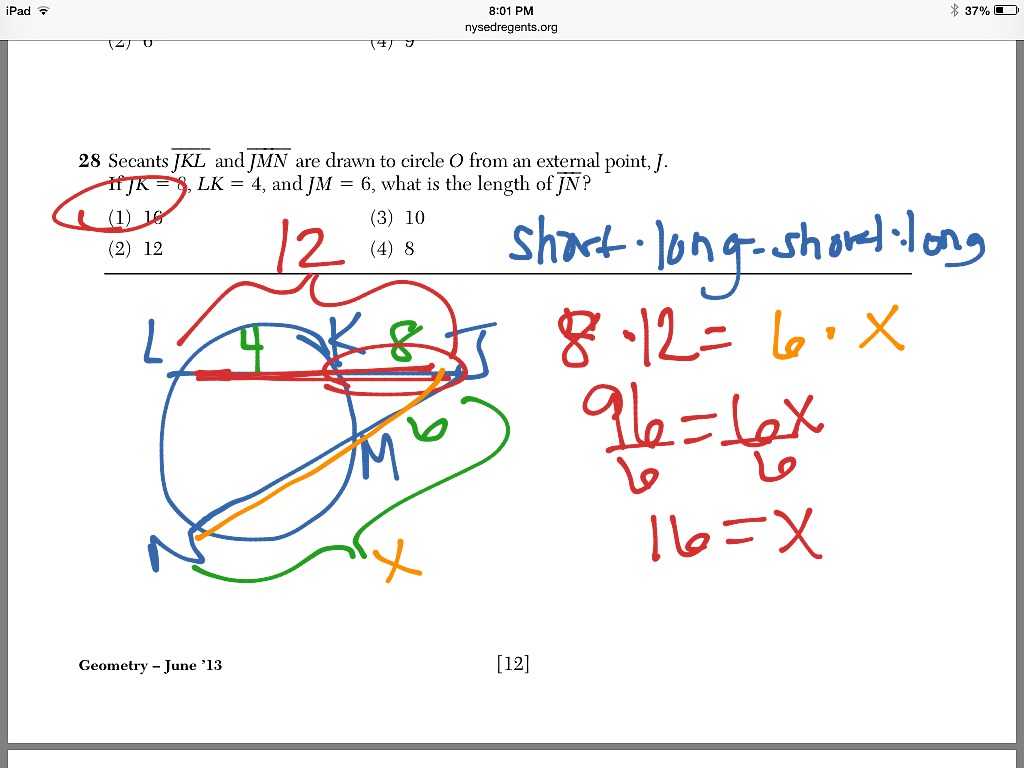 iPad 8:01 PM 37%
nysedregents.org
28 Secants JKL and JMN are drawn to circle O from an external point, J.
If JK = 8, LK = 4, and JM = 6, what is the length of JN?
(1) 16 (3) 10
(2) 12 (4) 8
12
short · long = short · long
L 4 K 8 J
8 · 12 = 6 · X
96 = 6X
6 6
M 6
16 = X
N X
Geometry – June ’13 [12]